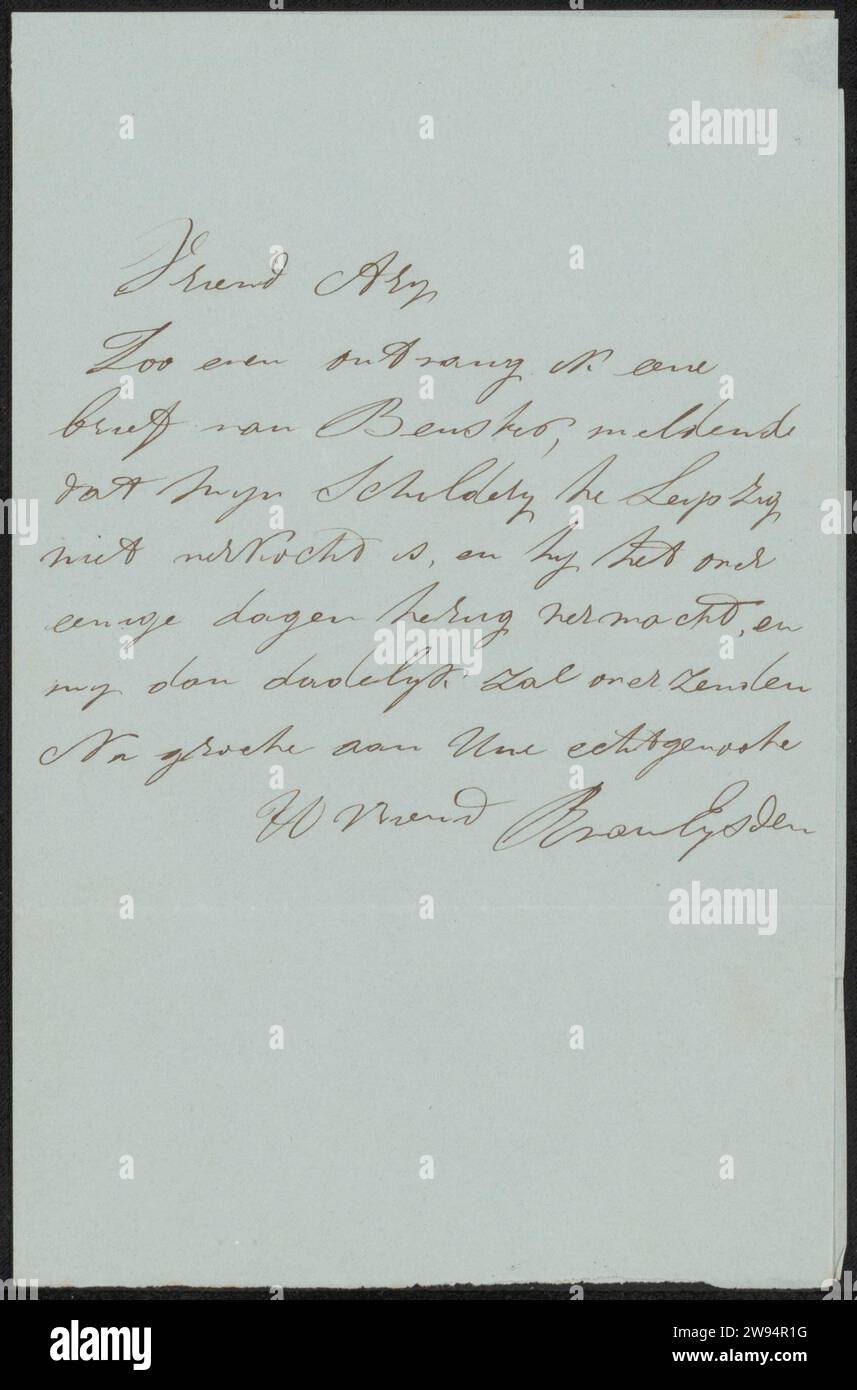 Vriend Ary
Zoo even ontvang ik eene
brief van meldende
dat myn Schildery te Leipzig
niet verkocht is, en hy het over
eenige dagen terug verwacht, en
my dan dadelyk zal overzenden
Na groete aan Uwe echtgenoote
UW vriend RvanEysden
alamy
alamy
alamy
a
alamy
Image ID: 2W94R1G
www.alamy.com